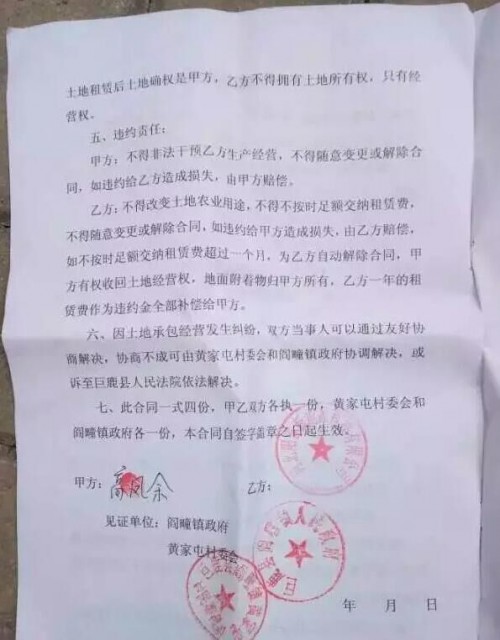 土地租赁后土地确权是甲方，乙方不得拥有土地所有权，只有经
营权。
五、违约责任：
甲方：不得非法干预乙方生产经营，不得随意变更或解除合
同，如违约给乙方造成损失，由甲方赔偿。
乙方：不得改变土地农业用途，不得不按时足额交纳租赁费，
不得随意变更或解除合同，如违约给甲方造成损失，由乙方赔偿，
如不按时足额交纳租赁费超过一个月。为乙方自动解除合同，甲
方有权收回土地经营权，地面附着物归甲方所有，乙方一年的租
赁费作为违约金全部补偿给甲方。
六、因土地承包经营发生纠纷，双方当事人可以通过友好协
商解决，协商不成可由黄家屯村委会和阎疃镇政府协调解决，或
诉至巨鹿县人民法院依法解决。
七、此合同一式四份，甲乙双方各执一份，黄家屯村委会和
阎疃镇政府各一份，本合同自签字盖章之日起生效。
甲方：高凤余 乙方：
见证单位：阎疃镇政府
黄家屯村委会
年 月 日